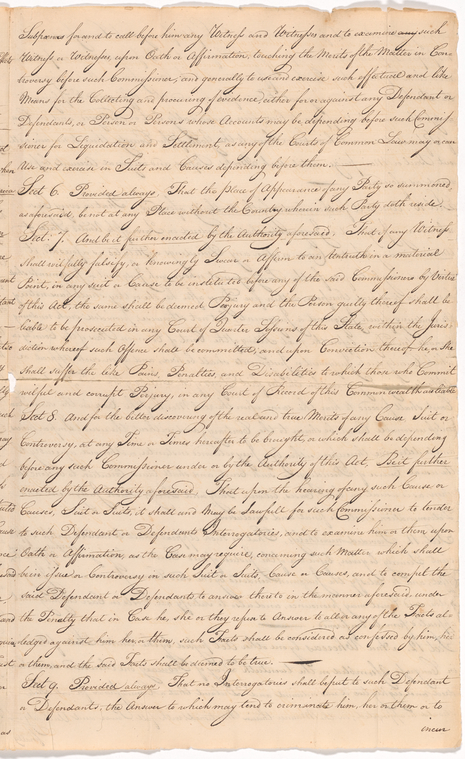 Subpœnas for and to call before him any Witness and Witnesses and to examine any such
Witness or Witnesses upon Oath or Affirmation, touching the Merits of the Matter in Con
troversy before such Commissioner, and generally to use and exercise such effectual and like
Means for the Collecting and procuring of evidence, either for or against any Defendant or
Defendants, or Person or Persons whose Accounts may be depending before such Commis
sioner for Liquidation and Settlement, as any of the Courts of Common Law may or can
Use and exercise in Suits and Causes depending before them.
Sect 6. Provided always, That the place of Appearance of any Party so summoned,
as aforesaid, be not at any Place without the County wherein such Party doth reside.
Sect: 7. And be it further enacted by the Authority aforesaid. That if any Witness
shall wilfully falsify, or knowingly Swear or Affirm to an Untruth in a material
Point, in any suit or Cause to be instituted before any of the said Commissioners by Virtue
of this Act, the same shall be deemed Perjury and the Person guilty thereof shall be
liable to be prosecuted in any Court of Quarter Sessions of this State, within the Juris
diction whereof such Offence shall be committed, and upon Conviction thereof he, or She
shall suffer the like Pains, Penalties, and Disabilities to which those who Commit
wilful and corrupt Perjury, in any Court of Record of this Commonwealth are liable
Sect 8. And for the better discovering of the real and true Merits of any Cause Suit or
Controversy, at any Time or Times hereafter to be brought, or which shall be depending
before any such Commissioner under or by the Authority of this Act, Be it further
enacted by the Authority aforesaid, That upon the hearing of any such Cause or
Causes, Suit or Suits, it shall and May be Lawfull for such Commissioner to tender
to such Defendant or Defendants Interrogatories, and to examine him or them upon
Oath or Affirmation, as the Case may require, concerning such Matter which shall
be in issue or Controversy in such Suit or Suits, Cause or Causes, and to compel the
said Defendant or Defendants to answer thereto in the manner aforesaid, under
the Penalty that in Case he, she or they refuse to Answer to all or any of the Facts al
ledged against him her, or them, such Facts shall be considered as confessed by him, her
or them, and the said Facts shall be deemed to be true.
Sect 9. Provided always, That no Interrogatories shall be put to such Defendant
or Defendants, the Answer to which may tend to criminate him, her or them or to
incur